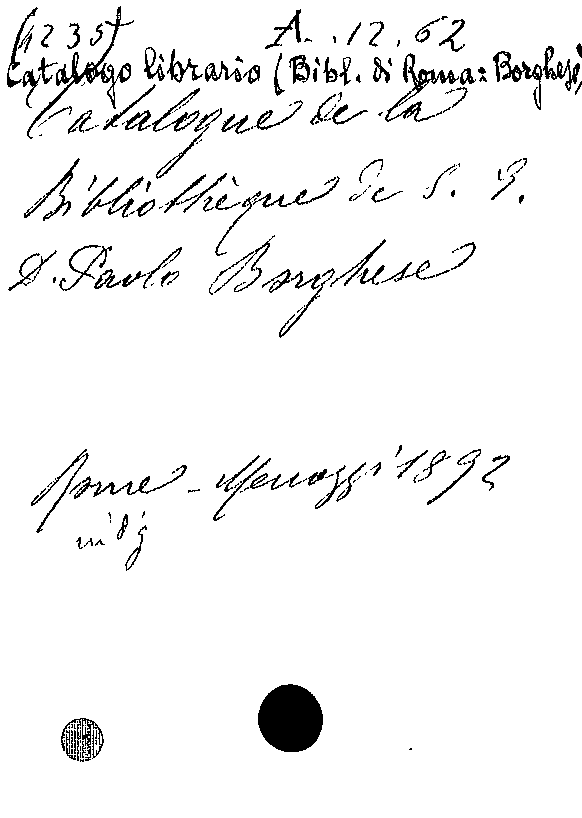 (4235) A. .12.62
Catalogo librario (Bibl. di Roma: Borghese)
Catalogue de la
Bibliothèque de S. E.
D. Paolo Borghese
Rome - Menozzi 1892
in 8º